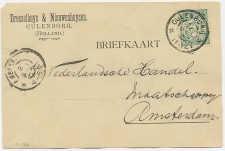 Dresselhuys & Nieuwenhuysen.
CULEMBORG.
(HOLLAND.)
BRIEFKAART
CULEMBORG
Nederlandsche Handel-
Maatschappy
Amsterdam.